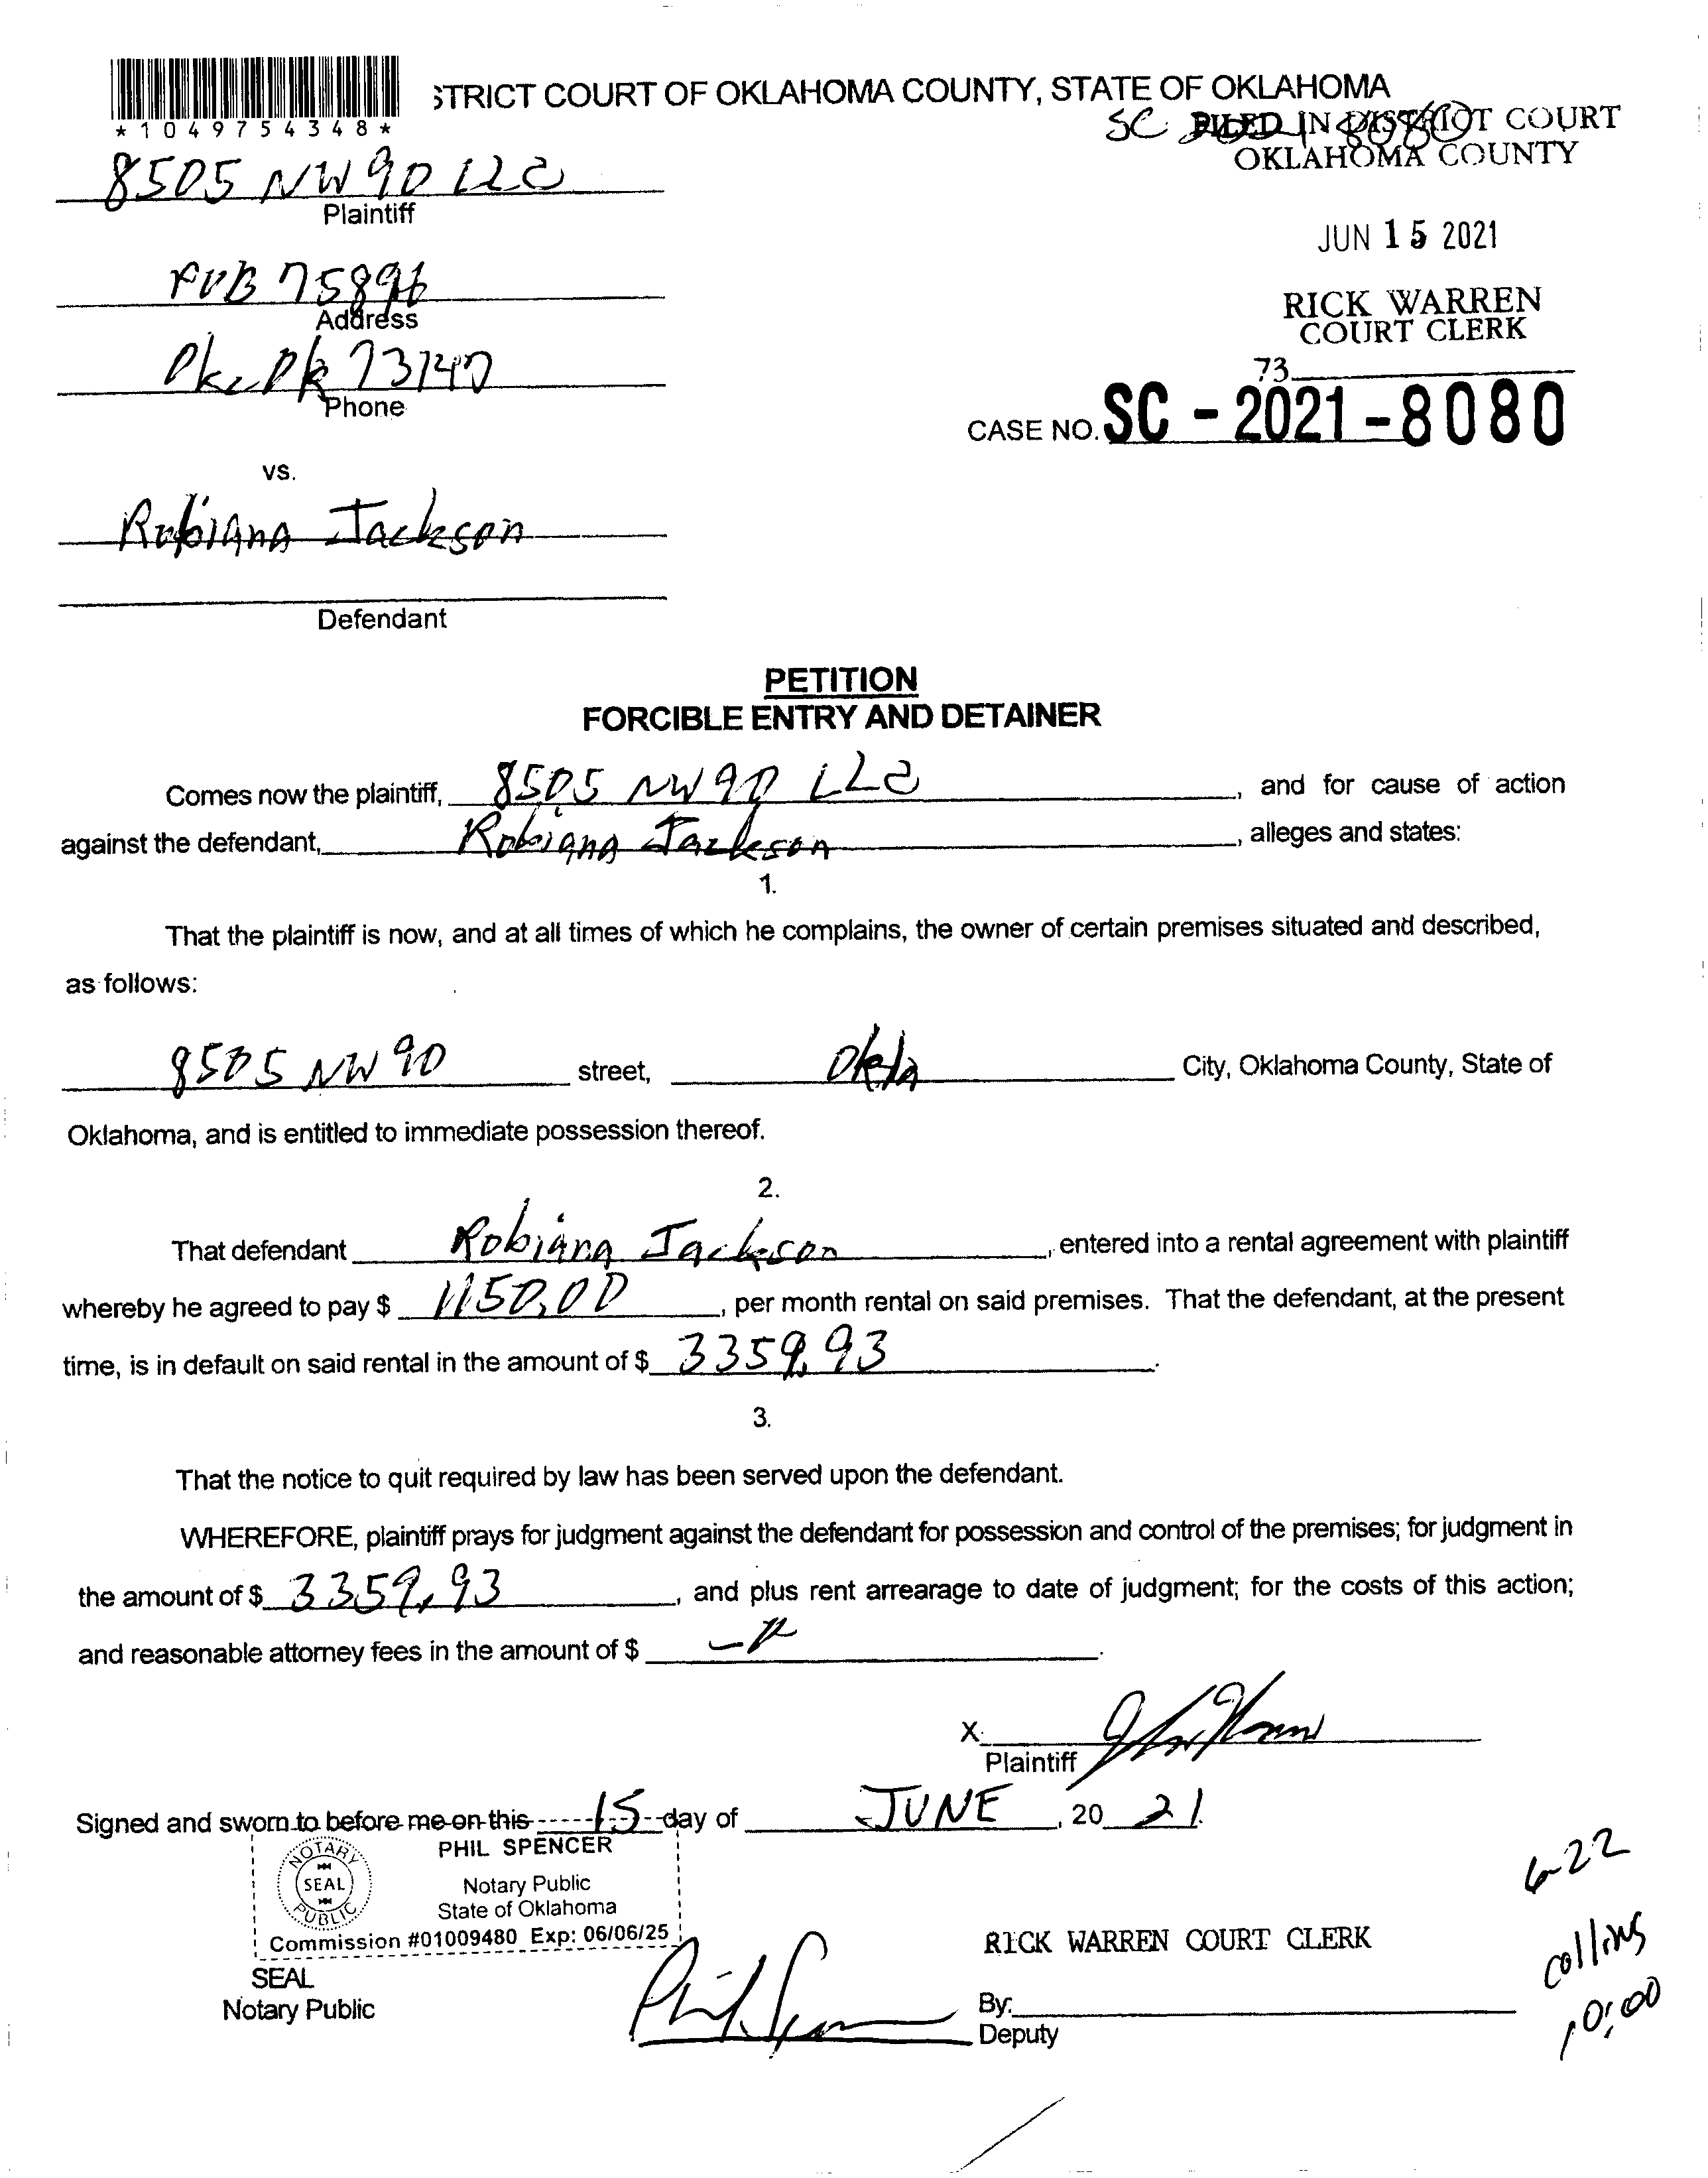 STRICT COURT OF OKLAHOMA COUNTY, STATE OF OKLAHOMA
*1049754348*
SC 2021 8080
FILED IN DISTRICT COURT
OKLAHOMA COUNTY
8505 NW 90 LLC
Plaintiff
JUN 15 2021
POB 75896
Address
RICK WARREN
COURT CLERK
Okc Ok 73147
Phone
73
CASE NO. SC - 2021 - 8080
vs.
Robiana Jackson
Defendant
PETITION
FORCIBLE ENTRY AND DETAINER
Comes now the plaintiff, 8505 NW 90 LLC, and for cause of action
against the defendant, Robiana Jackson, alleges and states:
1.
That the plaintiff is now, and at all times of which he complains, the owner of certain premises situated and described,
as follows:
8505 NW 90 street, Okla City, Oklahoma County, State of
Oklahoma, and is entitled to immediate possession thereof.
2.
That defendant Robiana Jackson, entered into a rental agreement with plaintiff
whereby he agreed to pay $ 1150.00, per month rental on said premises. That the defendant, at the present
time, is in default on said rental in the amount of $ 3359.93.
3.
That the notice to quit required by law has been served upon the defendant.
WHEREFORE, plaintiff prays for judgment against the defendant for possession and control of the premises; for judgment in
the amount of $ 3359.93, and plus rent arrearage to date of judgment; for the costs of this action;
and reasonable attorney fees in the amount of $ .
X
Plaintiff
Signed and sworn to before me on this 15 day of JUNE, 20 21.
NOTARY PUBLIC SEAL
PHIL SPENCER
Notary Public
State of Oklahoma
Commission #01009480 Exp: 06/06/25
SEAL
Notary Public
RICK WARREN COURT CLERK
By:
Deputy
6-22
collins
10:00